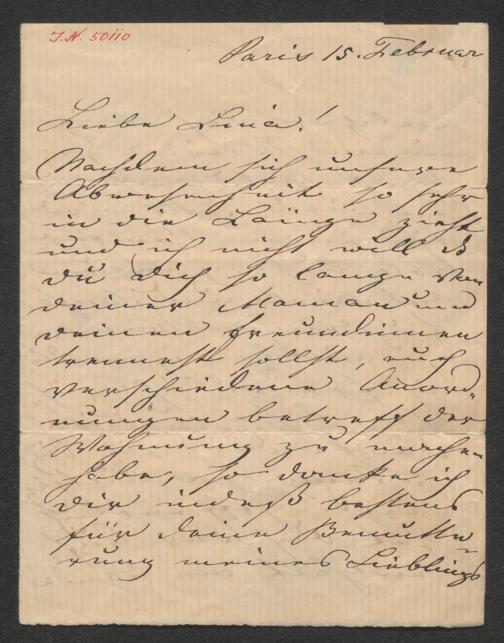 I.N. 50110
Paris 15. Februar
Liebe Lina!
Nachdem sich unsere
Abwesenheit so sehr
in die Länge zieht
und ich nicht will ds
du dich so lange von
deiner Maman und
deinen Freundinnen
trennest sollst, auch
verschiedene Anord-
nungen betreff der
Wohnung zu machen
habe, so danke ich
dir indeß bestens
für deine Bemutte-
rung meines Lieblings